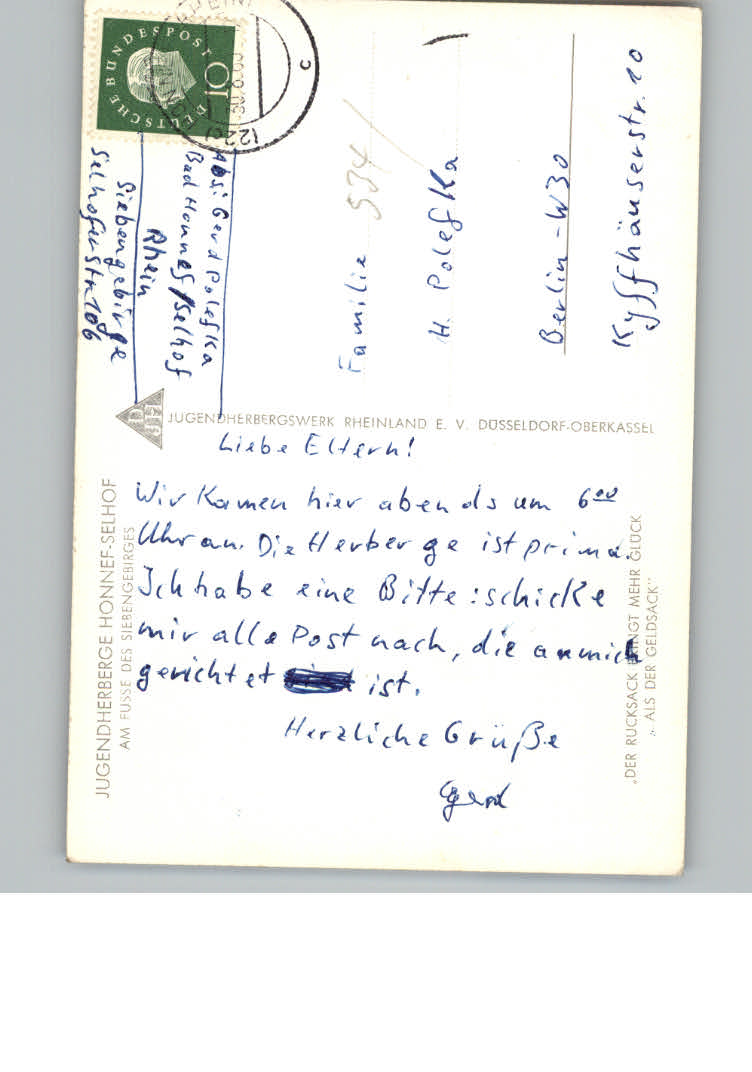 DEUTSCHE BUNDESPOST
10
(22c)
c
Abs: Gerd Polefka
Bad Honnef/Selhof
Rhein
Siebengebirge
Selhoferstr 106
Familie 534/
H. Polefka
Berlin-W30
Kyffhäuserstr. 20
JUGENDHERBERGSWERK RHEINLAND E. V. DÜSSELDORF-OBERKASSEL
JUGENDHERBERGE HONNEF-SELHOF
AM FUSSE DES SIEBENGEBIRGES
Liebe Eltern!
Wir kamen hier abends um 6 00
Uhr an. Die Herberge ist prima.
Ich habe eine Bitte: schicke
mir alle Post nach, die an mich
gerichtet ist.
Herzliche Grüße
Gerd
„DER RUCKSACK BRINGT MEHR GLÜCK
„ ALS DER GELDSACK"